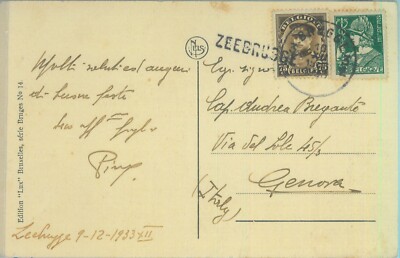 Molti saluti e/ auguri
di buone feste
tuo aff
Pino
Zeebrugge 9-12-1933 XII
Edition "Lux" Bruxelles, série Bruges No 14
Lux
ZEEBRUGGE
BELGIQUE
BELGIE
Cap. Andrea Bregante
Via del Sole 45/3
Genova
(Italy)